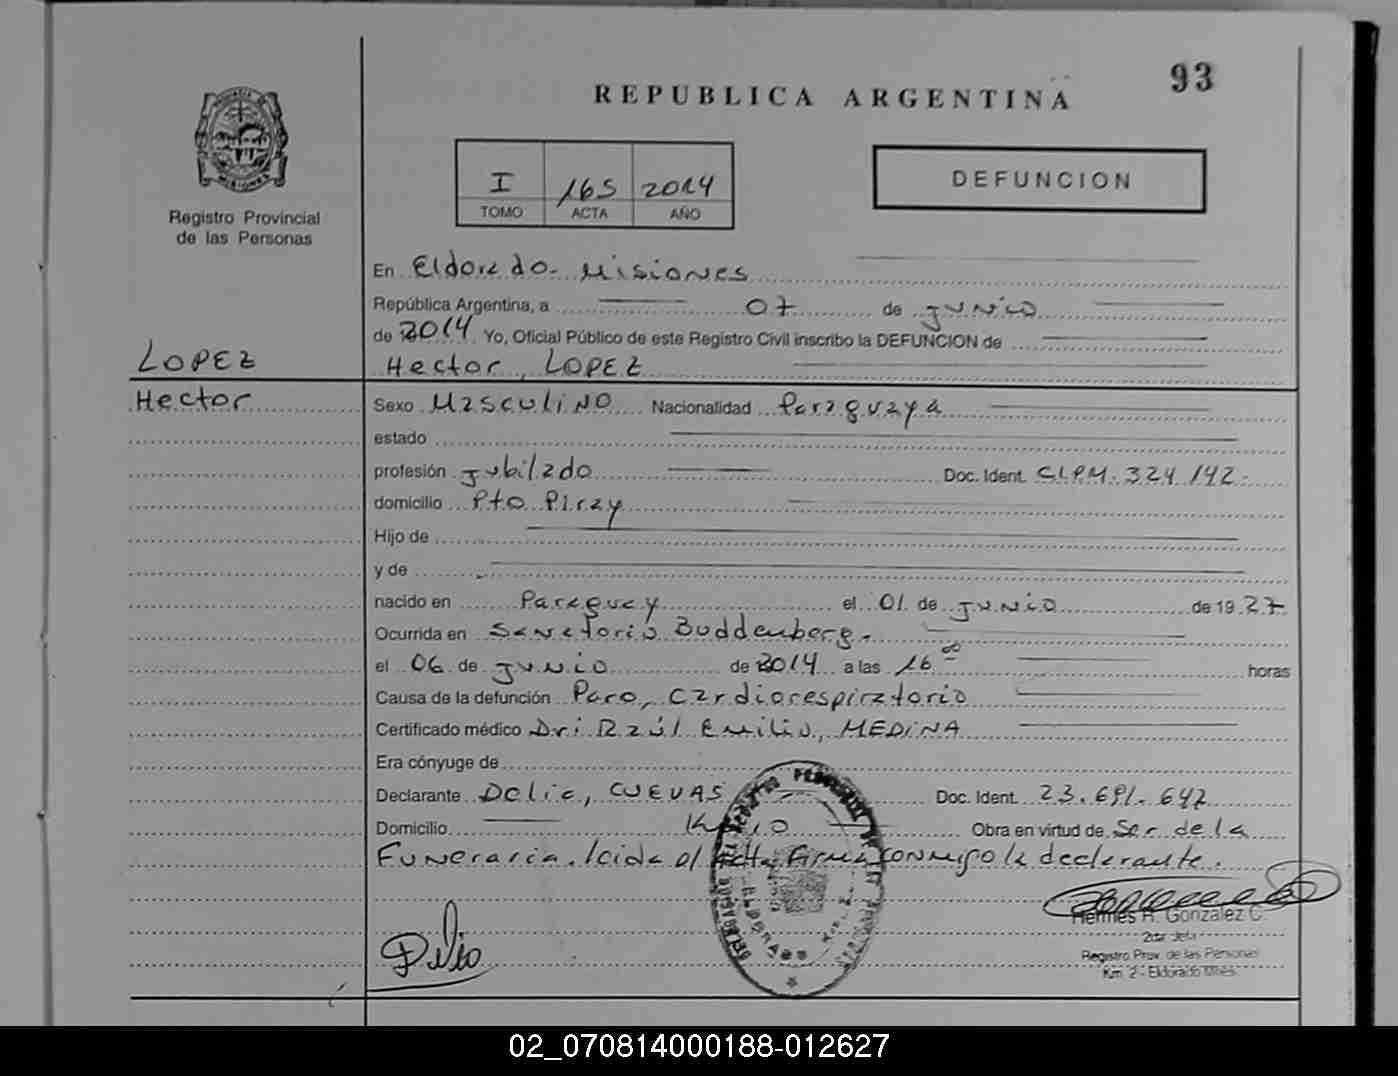 93
REPUBLICA ARGENTINA
PROVINCIA DE MISIONES
Registro Provincial
de las Personas
I 165 2014
TOMO ACTA AÑO
DEFUNCION
En Eldorado - Misiones
República Argentina, a 07 de junio
de 2014 Yo, Oficial Público de este Registro Civil inscribo la DEFUNCION de
LOPEZ
Hector, LOPEZ
Hector
Sexo Masculino Nacionalidad Paraguaya
estado
profesión jubilado Doc. Ident. C.I.P.M. 324.142.
domicilio Pto Piray
Hijo de
y de
nacido en Paraguay el 01 de junio de 19 27
Ocurrida en Sanatorio Buddenberg.
el 06 de junio de 2014 a las 16 00 horas
Causa de la defunción Paro, cardiorespiratorio
Certificado médico Dr: Raúl Emilio, MEDINA
Era cónyuge de
Declarante Delia, CUEVAS Doc. Ident. 23.691.647
Domicilio Obra en virtud de Ser de la
Funeraria. leida el Acta firma conmigo la declarante.
Hermes R. Gonzalez C.
Registro Prov. de las Personas
Km. 2 - Eldorado Mnes.
02_070814000188-012627